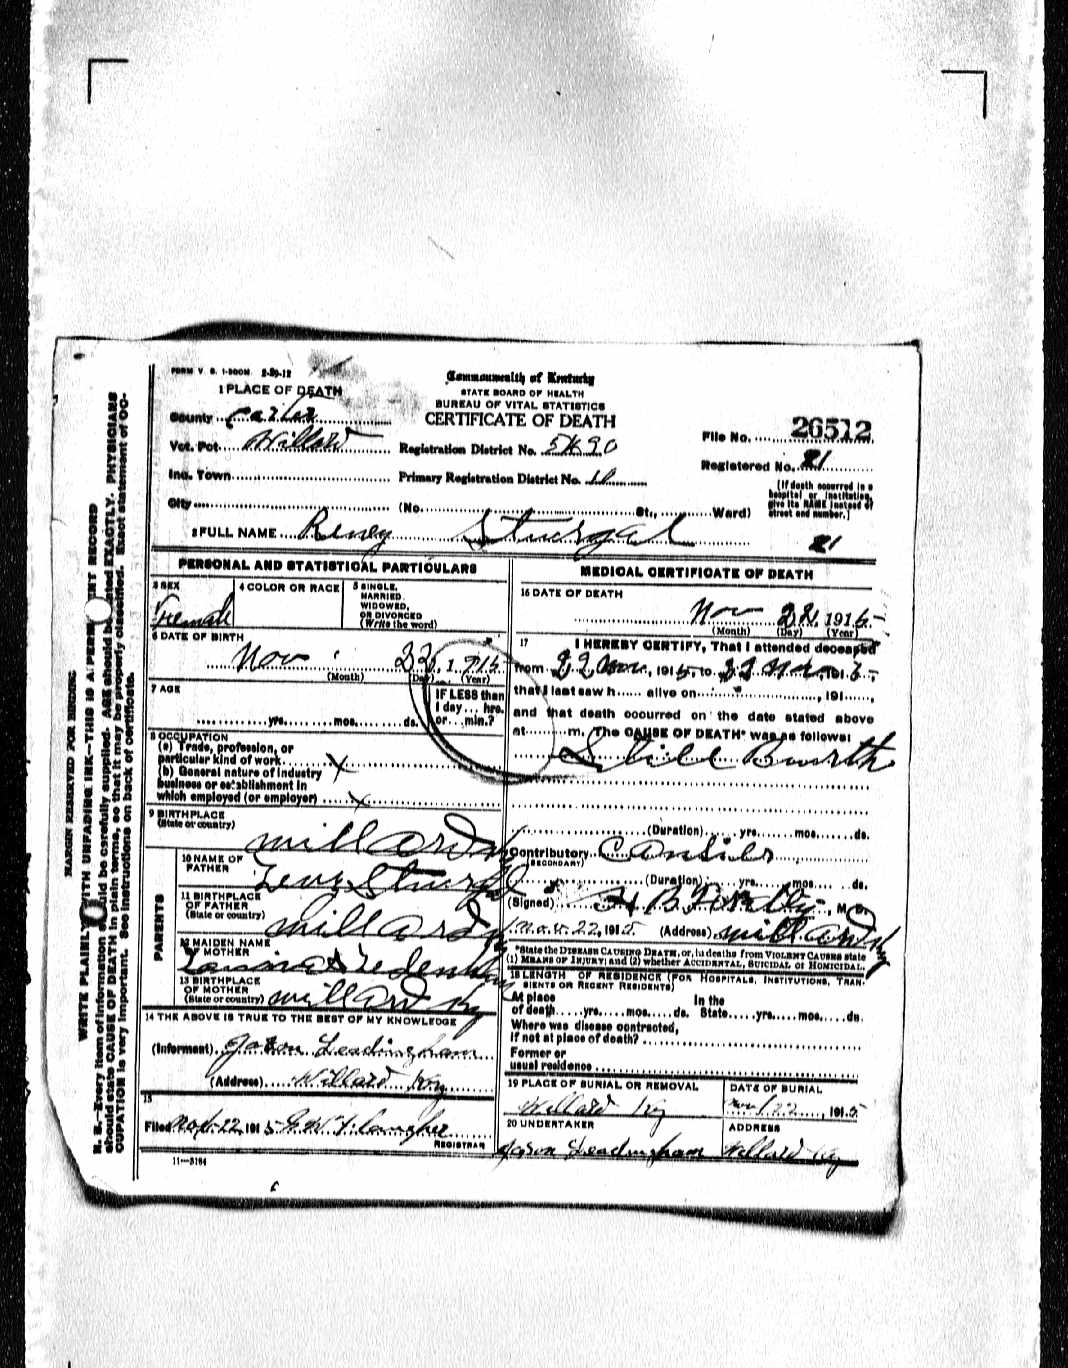 FORM V. S. 1-500M. 2-20-12
1 PLACE OF DEATH
County Carter
Vot. Pct. Willard
Inc. Town
City
Commonwealth of Kentucky
STATE BOARD OF HEALTH
BUREAU OF VITAL STATISTICS
CERTIFICATE OF DEATH
Registration District No. 5490
Primary Registration District No.
(No. St., Ward)
File No. 26512
Registered No. 21
[If death occurred in a
hospital or institution,
give its NAME instead of
street and number.]
2 FULL NAME Reney Sturgal
21
PERSONAL AND STATISTICAL PARTICULARS
3 SEX
Female
4 COLOR OR RACE
5 SINGLE,
MARRIED,
WIDOWED,
OR DIVORCED
(Write the word)
6 DATE OF BIRTH
Nov 22, 1915
(Month) (Day) (Year)
7 AGE
yrs. mos. ds.
IF LESS than
1 day... hrs.
or... min.?
8 OCCUPATION
(a) Trade, profession, or
particular kind of work X
(b) General nature of industry
business or establishment in
which employed (or employer) X
9 BIRTHPLACE
(State or country)
Millard Ky
PARENTS
10 NAME OF
FATHER
Sturgal
11 BIRTHPLACE
OF FATHER
(State or country)
Millard Ky
12 MAIDEN NAME
OF MOTHER
13 BIRTHPLACE
OF MOTHER
(State or country) Millard Ky
14 THE ABOVE IS TRUE TO THE BEST OF MY KNOWLEDGE
(Informant) Jason Leadingham
(Address) Willard Ky
15
Filed Nov. 22, 1915 G. W.
REGISTRAR
11—3184
MEDICAL CERTIFICATE OF DEATH
16 DATE OF DEATH
Nov 22, 1915
(Month) (Day) (Year)
17 I HEREBY CERTIFY, That I attended deceased
from 22 Nov, 1915, to 22 Nov, 1915,
that I last saw h...... alive on , 191 ,
and that death occurred on the date stated above
at m. The CAUSE OF DEATH* was as follows:
Still Burth
(Duration) yrs. mos. ds.
Contributory
(SECONDARY)
(Duration) yrs. mos. ds.
(Signed) H B , M. D.
Nov. 22, 1915 (Address) Millard Ky
*State the DISEASE CAUSING DEATH, or, in deaths from VIOLENT CAUSES state
(1) MEANS OF INJURY; and (2) whether ACCIDENTAL, SUICIDAL or HOMICIDAL.
18 LENGTH OF RESIDENCE (FOR HOSPITALS, INSTITUTIONS, TRANSIENTS OR RECENT RESIDENTS)
At place In the
of death yrs. mos. ds. State yrs. mos. ds.
Where was disease contracted,
if not at place of death?
Former or
usual residence
19 PLACE OF BURIAL OR REMOVAL
Willard Ky
DATE OF BURIAL
Nov 22, 1915
20 UNDERTAKER
Jason Leadingham
ADDRESS
Willard Ky
MARGIN RESERVED FOR BINDING
WRITE PLAINLY WITH UNFADING INK—THIS IS A PERMANENT RECORD
N. B.—Every item of information should be carefully supplied. AGE should be stated EXACTLY. PHYSICIANS
should state CAUSE OF DEATH in plain terms, so that it may be properly classified. Exact statement of OC-
CUPATION is very important. See instructions on back of certificate.